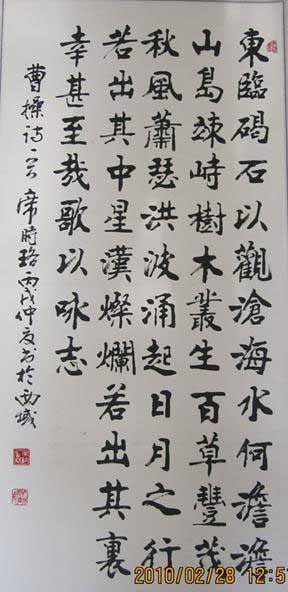 東臨碣石以觀滄海水何澹澹
山島竦峙樹木叢生百草豐茂
秋風蕭瑟洪波涌起日月之行
若出其中星漢燦爛若出其裏
幸甚至哉歌以咏志
曹操诗一首 席時珞 丙戌仲夏书於西域
2010/02/28 12:5